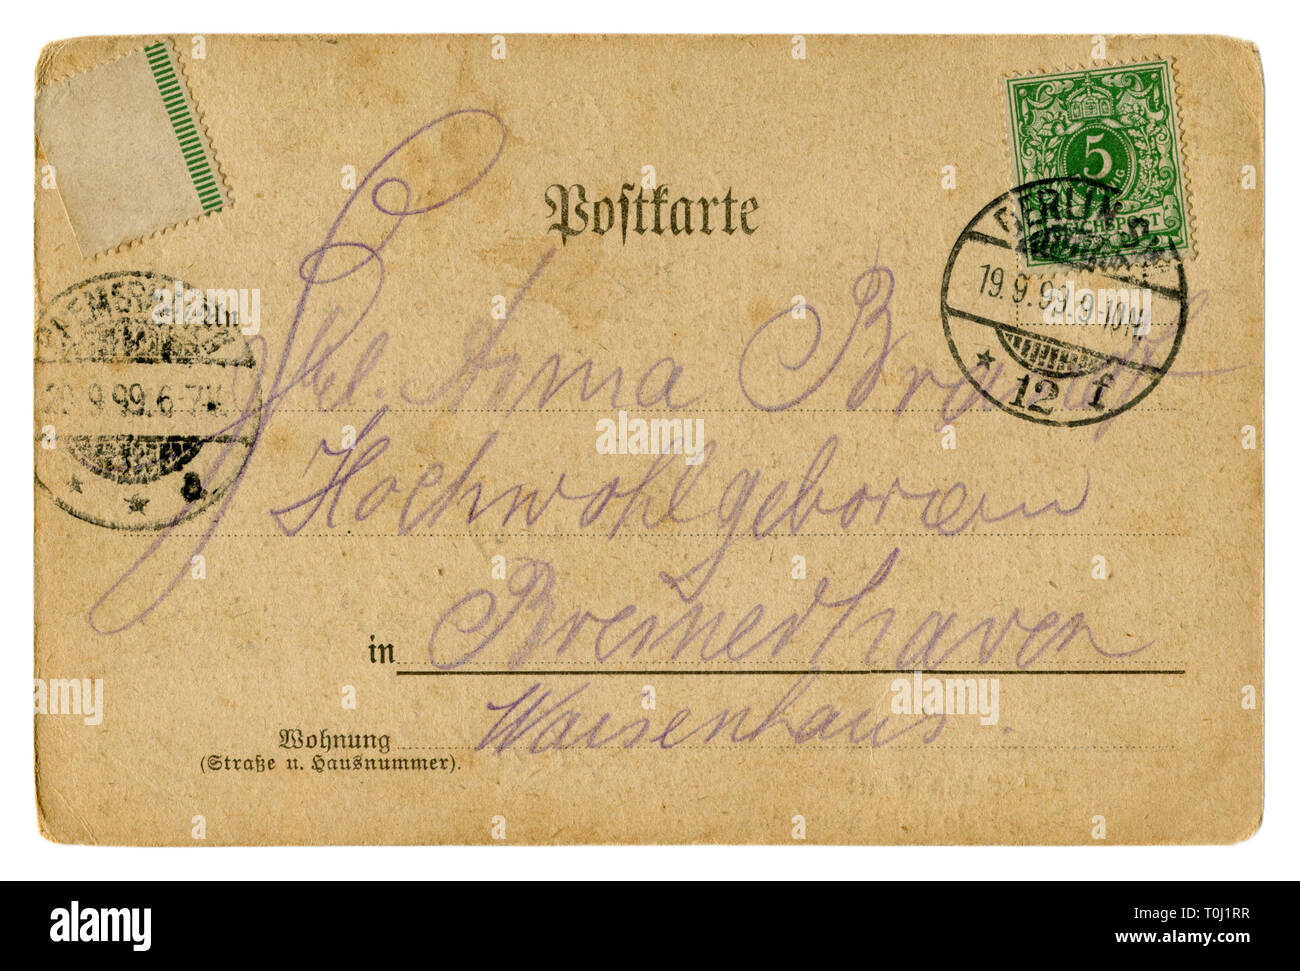 Postkarte
5
REICHSPOST
BERLIN
19.9.99.9-10N.
12 f
An
BREMERHAVEN
20.9.99.6-7V.
a
Frl. Anna Brandt
Hochwohlgeboren
in Bremerhaven
Wohnung Waisenhaus.
(Straße u. Hausnummer).
alamy
Image ID: T0J1RR
www.alamy.com